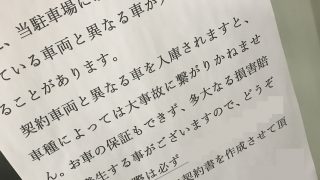 、当駐車場に
ている車両と異なる車が
ることがあります。
契約車両と異なる車を入庫されますと、
車種によっては大事故に繋がりかねませ
ん。お車の保証もできず、多大なる損害賠
生する事がございますので、どうぞ
際は必ず
契約書を作成させて頂